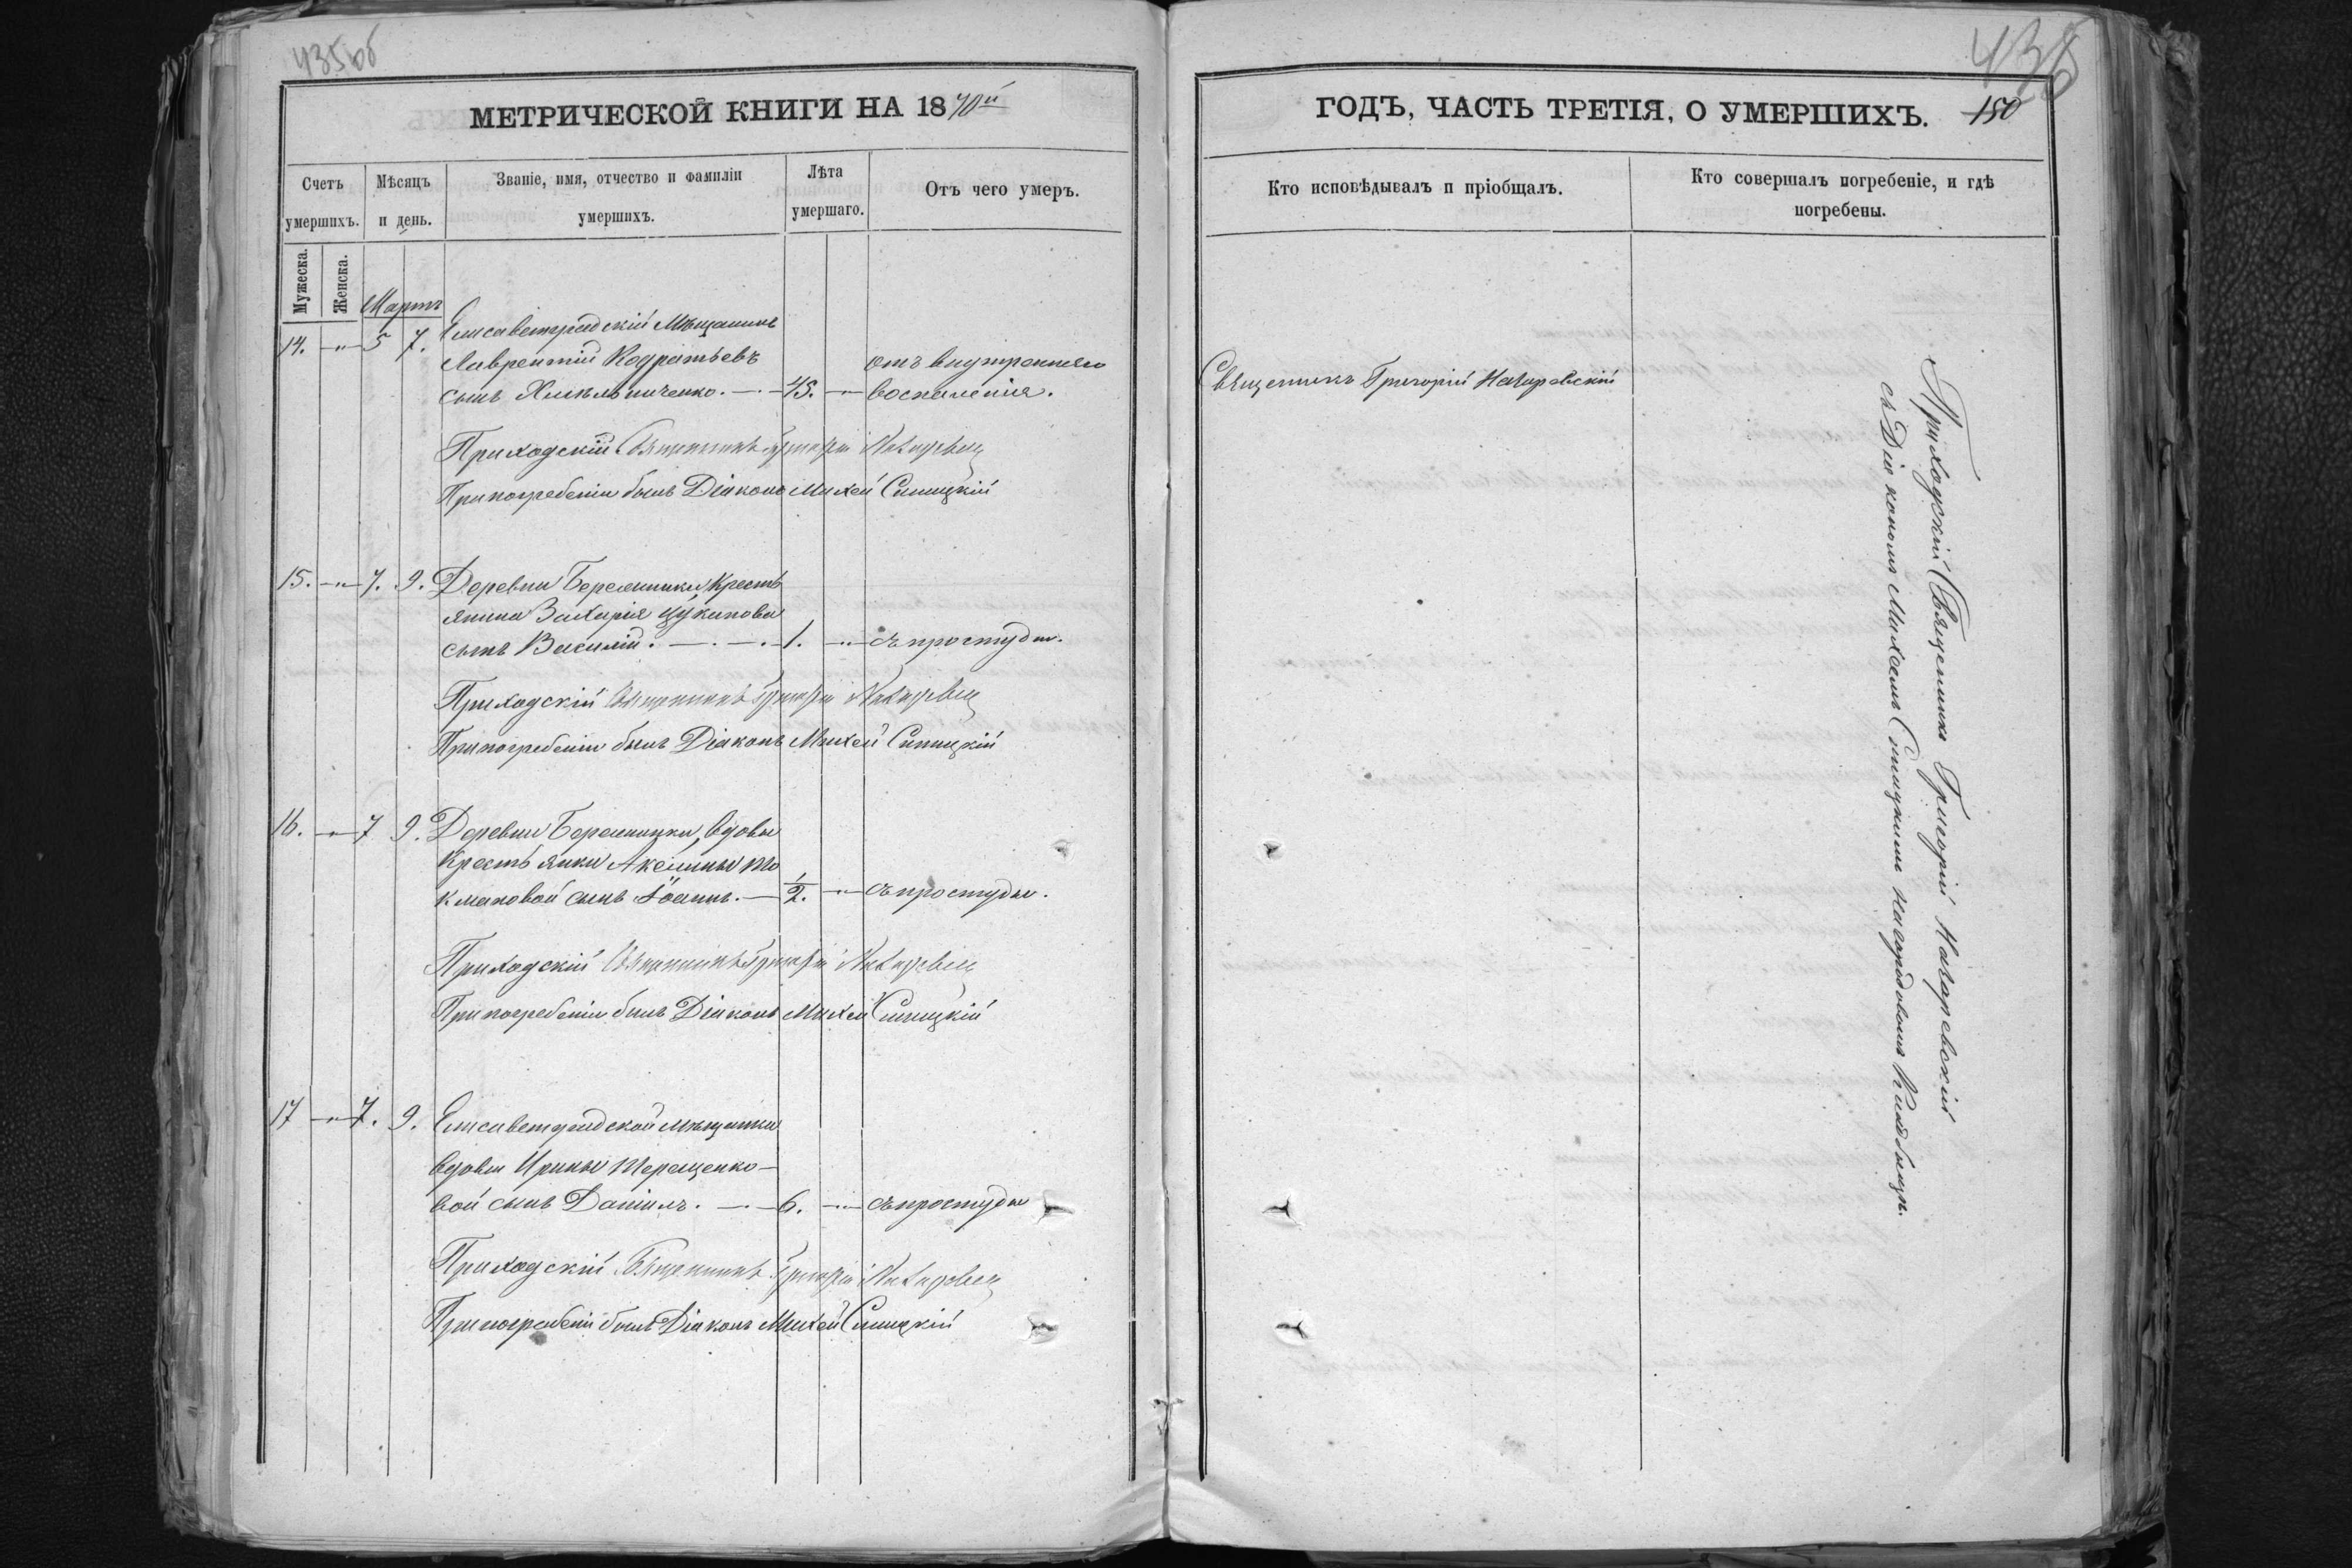 435об
МЕТРИЧЕСКОЙ КНИГИ НА 1870й
Счетъ умершихъ.
Мѣсяцъ и день.
Званіе, имя, отчество и фамиліи умершихъ.
Лѣта умершаго.
Отъ чего умеръ.
Мужеска.
Женска.
Мартъ
14. -"- 5 7. Елисаветградскій Мѣщанинъ
Лаврентій Кодратьевъ отъ внутренняго
сынъ Хмѣльниченко. 45. -"- воспаленія.
Приходскій Священникъ Григорій
При погребеніи былъ Діаконъ Михей Синицкій
15. -"- 7. 9. Деревни Крестъ
янина Захарія
сынъ Василій. 1. -"- съ простуды.
Приходскій Священникъ Григорій
При погребеніи былъ Діаконъ Михей Синицкій
16. -"- 7 9. Деревни вдовы
Крестьянки То
кмаковой сынъ Іоаннъ. 1/2. -"- съ простуды.
Приходскій Священникъ Григорій
При погребеніи былъ Діаконъ Михей Синицкій
17 -"- 7. 9. Елисаветградской мѣщанки
вдовы Ирины Терещенко-
вой сынъ Даніилъ. 6. -"- съ простуды
Приходскій Священникъ Григорій
При погребеніи былъ Діаконъ Михей Синицкій
436
ГОДЪ, ЧАСТЬ ТРЕТІЯ, О УМЕРШИХЪ. 150
Кто исповѣдывалъ и пріобщалъ.
Кто совершалъ погребеніе, и гдѣ погребены.
Священникъ Григорій
Приходскій Священникъ Григорій
съ Діакономъ Михеемъ Синицкимъ